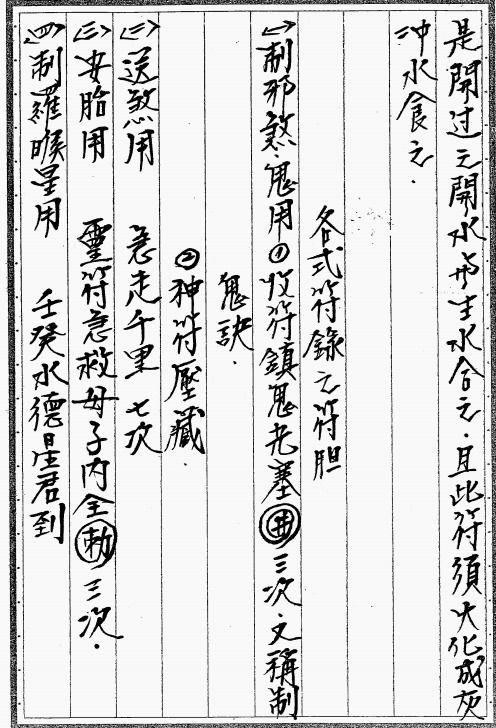 是開过之開水与生水合之．且此符須火化成灰
冲水食之．
各式符錄之符胆
㈠制邪煞．鬼用①收符鎮鬼尤塞㊌三次．又稱制
鬼訣．
②神符壓藏．
㈡送煞用　急走千里　七次
㈢安胎用　靈符急救母子内全㊌三次．
㈣制羅睺星用　壬癸水德星君到